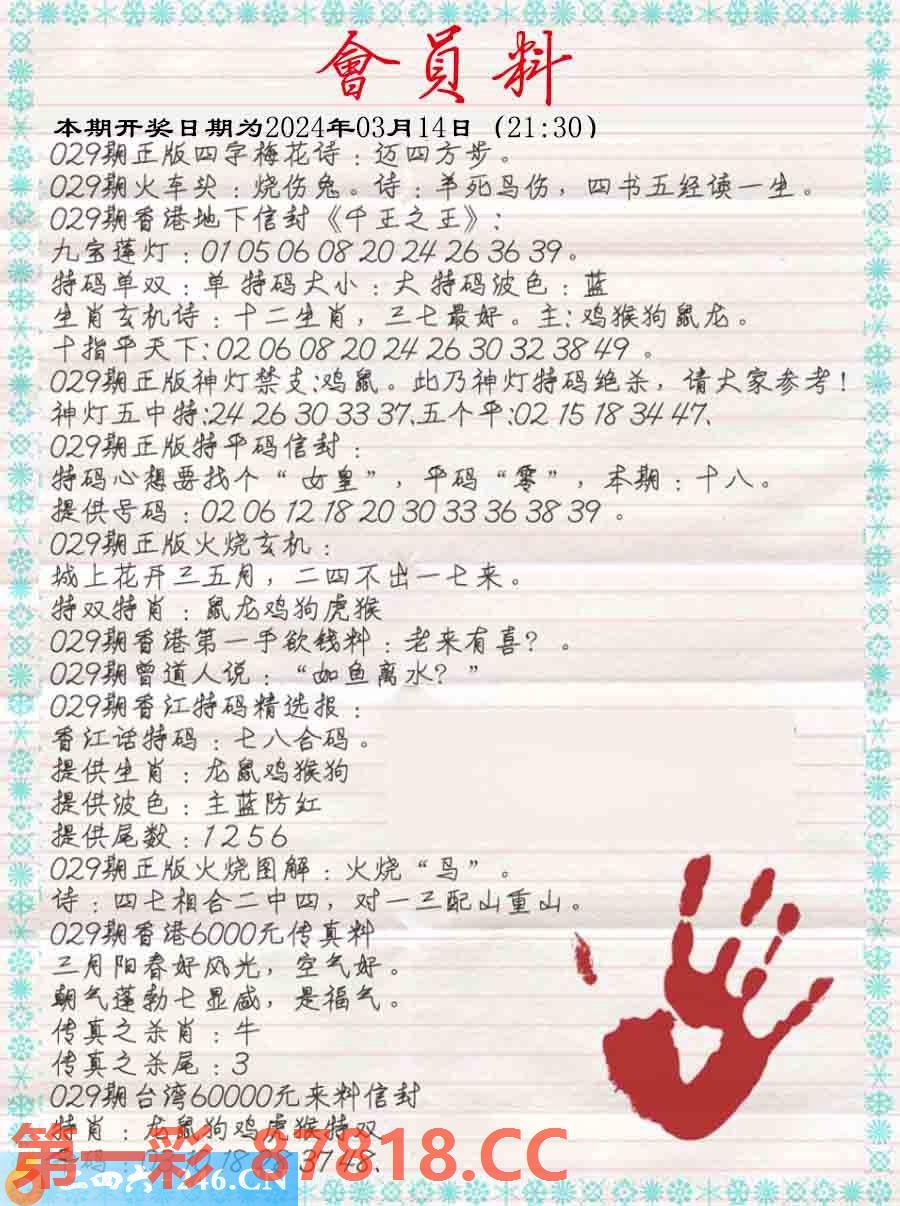 會員料
本期开奖日期为2024年03月14日（21:30）
029期正版四字梅花诗：迈四方步。
029期火车头：烧伤兔。诗：羊死鸟伤，四书五经读一生。
029期香港地下信封《千王之王》：
九宝莲灯：01 05 06 08 20 24 26 36 39。
特码单双：单 特码大小：大 特码波色：蓝
生肖玄机诗：十二生肖，三七最好。主：鸡猴狗鼠龙。
十指平天下：02 06 08 20 24 26 30 32 38 49 。
029期正版神灯禁支:鸡鼠。此乃神灯特码绝杀，请大家参考！
神灯五中特:24 26 30 33 37.五个平:02 15 18 34 47、
029期正版特平码信封：
特码心想要找个“女皇”，平码“零”，本期：十八。
提供号码：02 06 12 18 20 30 33 36 38 39 。
029期正版火烧玄机：
城上花开三五月，二四不出一七来。
特双特肖：鼠龙鸡狗虎猴
029期香港第一手欲钱料：老来有喜？。
029期曾道人说：“如鱼离水？”
029期香江特码精选报：
香江话特码：七八合码。
提供生肖：龙鼠鸡猴狗
提供波色：主蓝防红
提供尾数：1 2 5 6
029期正版火烧图解：火烧“鸟”。
诗：四七相合二中四，对一三配山重山。
029期香港6000元传真料
三月阳春好风光，空气好。
朝气蓬勃七显威，是福气。
传真之杀肖：牛
传真之杀尾：3
029期台湾60000元来料信封
特肖：龙鼠狗鸡虎猴特双
第一彩 87818.CC
18 37 48、
二四六 246.CN